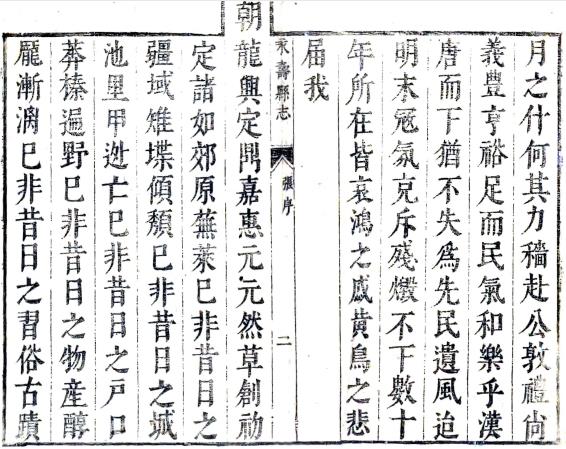 月之什何其力穡赴公敦禮尚
義豐亨裕足而民氣和樂乎漢
唐而下猶不失爲先民遺風迨
明末冦氛充斥殘燬不下數十
年所在皆哀鴻之感黄鳥之悲
屆我
永壽縣志 張序 二
朝龍興定鼎嘉惠元元然草創初
定諸如郊原蕪萊已非昔日之
疆域雉堞傾頽已非昔日之城
池里甲逃亡已非昔日之戸口
莽榛遍野已非昔日之物産醇
龐漸漓已非昔日之習俗古蹟